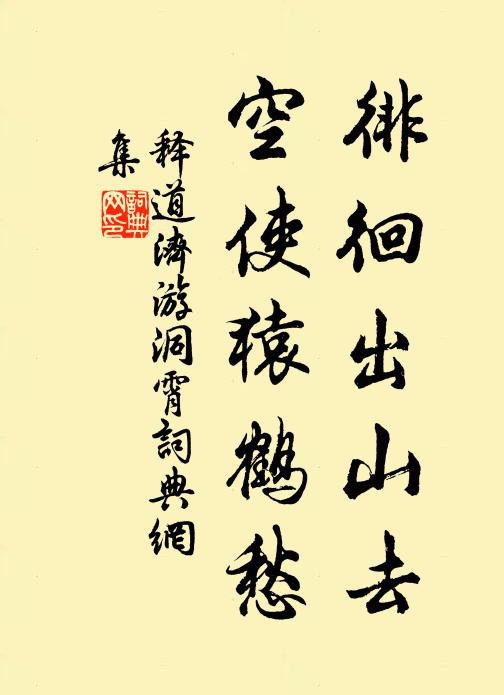 徘徊出山去
空使猿鶴愁
释道濟游洞霄詞典網
集
詞典
网印